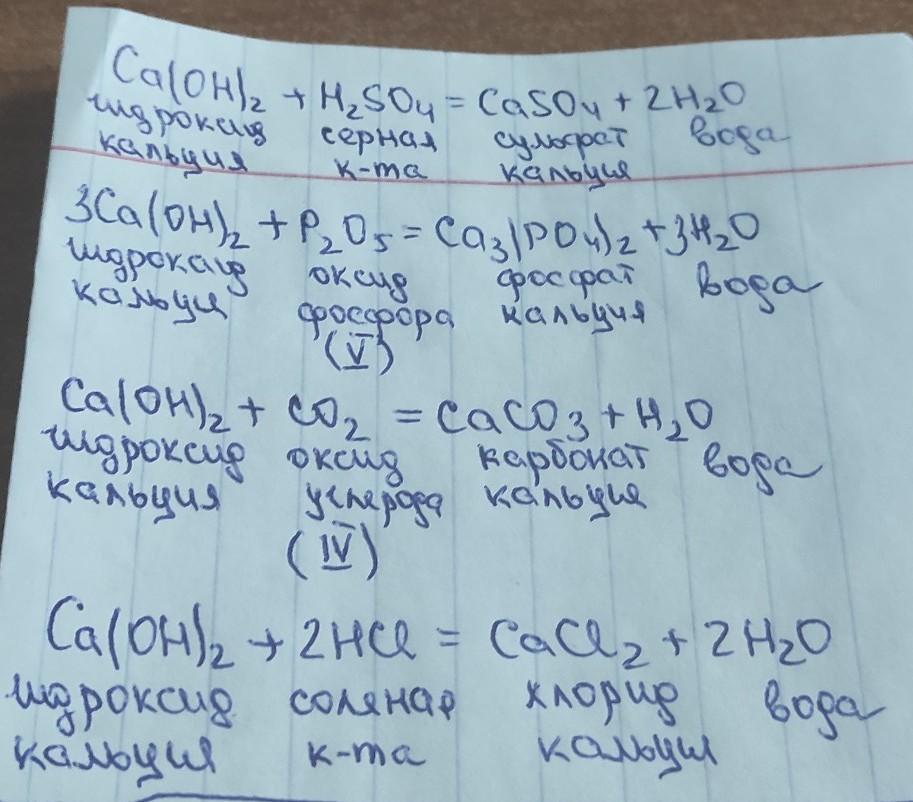 Ca(OH)₂ + H₂SO₄ = CaSO₄ + 2H₂O
гидроксид серная сульфат вода
кальция к-та кальция
3Ca(OH)₂ + P₂O₅ = Ca₃(PO₄)₂ + 3H₂O
гидроксид оксид фосфат вода
кальция фосфора кальция
(V)
Ca(OH)₂ + CO₂ = CaCO₃ + H₂O
гидроксид оксид карбонат вода
кальция углерода кальция
(IV)
Ca(OH)₂ + 2HCl = CaCl₂ + 2H₂O
гидроксид соляная хлорид вода
кальция к-та кальция